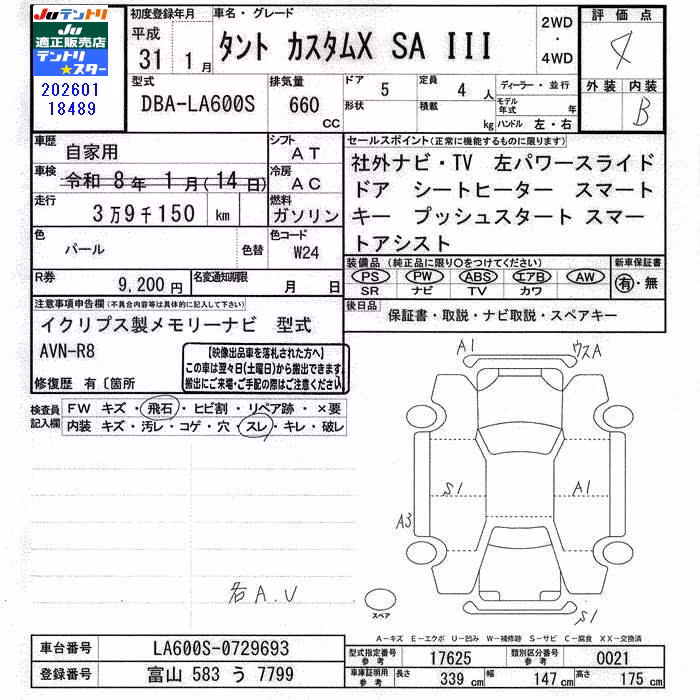 JUテントリ
JU
適正販売店
テントリ
★スター
202601
18489
初度登録年月
平成
31 1月
車名・グレード
タント カスタムX SA III
2WD
・
4WD
評価点
4
外装 内装
B
型式
DBA-LA600S
排気量
660
CC
ドア 5
形状
定員 4 人
積載 kg
ディーラー・並行
モデル年式 年
ハンドル 左・右
車歴 自家用
シフト AT
車検 令和 8年 1月(14日)
冷房 AC
走行 3万9千150 km
燃料 ガソリン
色 パール 色替
色コード W24
R券 9,200円
名変通知期限 月 日
セールスポイント(正常に機能するものに限ります)
社外ナビ・TV 左パワースライド
ドア シートヒーター スマート
キー プッシュスタート スマー
トアシスト
装備品(純正品に限り○をつけてください)
PS PW ABS エアB AW
SR ナビ TV カワ
新車保証書
有・無
後日品 保証書・取説・ナビ取説・スペアキー
注意事項申告欄(不具合内容等は具体的に記入して下さい)
イクリプス製メモリーナビ 型式
AVN-R8
【映像出品車を落札された方へ】
この車は翌々日(土曜日)から搬出できます。
搬出にご来場・ご手配の際はご注意ください
修復歴 有〔箇所
検査員記入欄
FW キズ・飛石・ヒビ割・リペア跡・×要
内装 キズ・汚レ・コゲ・穴・スレ・キレ・破レ
A1 ウスA
S1 A1
A3
各A.U
スペア
S1
A-キズ E-エクボ U-凹み W-補修跡 S-サビ C-腐食 XX-交換済
車台番号 LA600S-0729693
登録番号 富山 583 う 7799
型式指定番号 参考 17625
類別区分番号 参考 0021
車庫証明用 参考 長さ 339 cm 幅 147 cm 高さ 175 cm